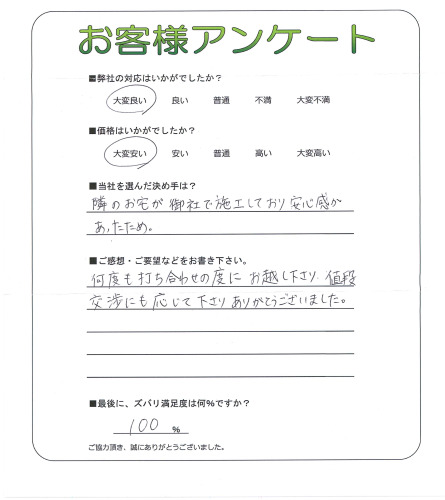 お客様アンケート
■弊社の対応はいかがでしたか？
大変良い 良い 普通 不満 大変不満
■価格はいかがでしたか？
大変安い 安い 普通 高い 大変高い
■当社を選んだ決め手は？
隣のお宅が御社で施工しており安心感が
あったため。
■ご感想・ご要望などをお書き下さい。
何度も打ち合わせの度にお越し下さり、値段
交渉にも応じて下さりありがとうございました。
■最後に、ズバリ満足度は何%ですか？
100 %
ご協力頂き、誠にありがとうございました。